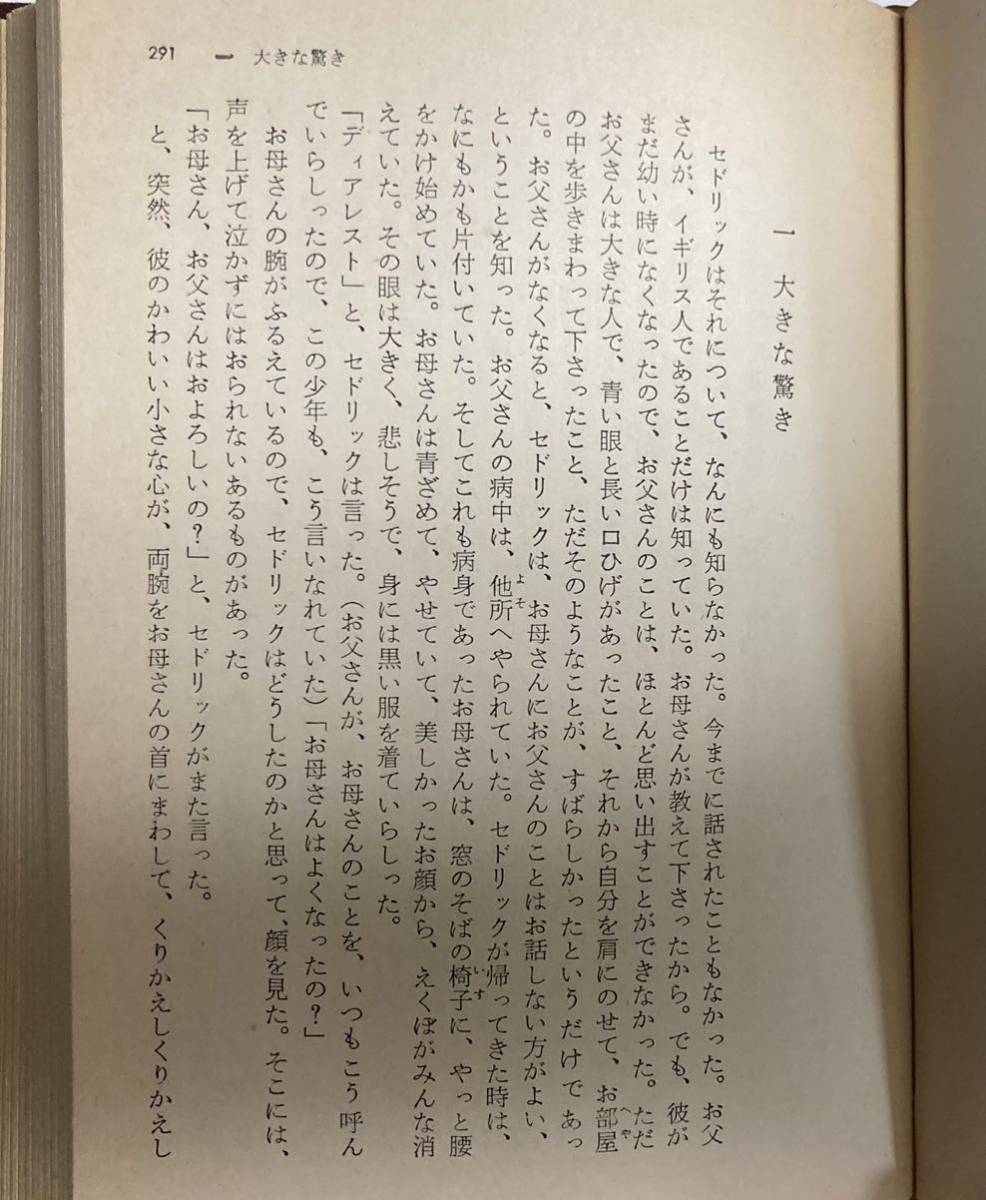 291 一 大きな驚き
一 大きな驚き
セドリックはそれについて、なんにも知らなかった。今までに話されたこともなかった。お父
さんが、イギリス人であることだけは知っていた。お母さんが教えて下さったから。でも、彼が
まだ幼い時になくなったので、お父さんのことは、ほとんど思い出すことができなかった。ただ
お父さんは大きな人で、青い眼と長い口ひげがあったこと、それから自分を肩にのせて、お部屋
の中を歩きまわって下さったこと、ただそのようなことが、すばらしかったというだけであっ
た。お父さんがなくなると、セドリックは、お母さんにお父さんのことはお話しない方がよい、
ということを知った。お父さんの病中は、他所へやられていた。セドリックが帰ってきた時は、
なにもかも片付いていた。そしてこれも病身であったお母さんは、窓のそばの椅子に、やっと腰
をかけ始めていた。お母さんは青ざめて、やせていて、美しかったお顔から、えくぼがみんな消
えていた。その眼は大きく、悲しそうで、身には黒い服を着ていらしった。
「ディアレスト」と、セドリックは言った。(お父さんが、お母さんのことを、いつもこう呼ん
でいらしったので、この少年も、こう言いなれていた)「お母さんはよくなったの?」
お母さんの腕がふるえているので、セドリックはどうしたのかと思って、顔を見た。そこには、
声を上げて泣かずにはおられないあるものがあった。
「お母さん、お父さんはおよろしいの?」と、セドリックがまた言った。
と、突然、彼のかわいい小さな心が、両腕をお母さんの首にまわして、くりかえしくりかえし